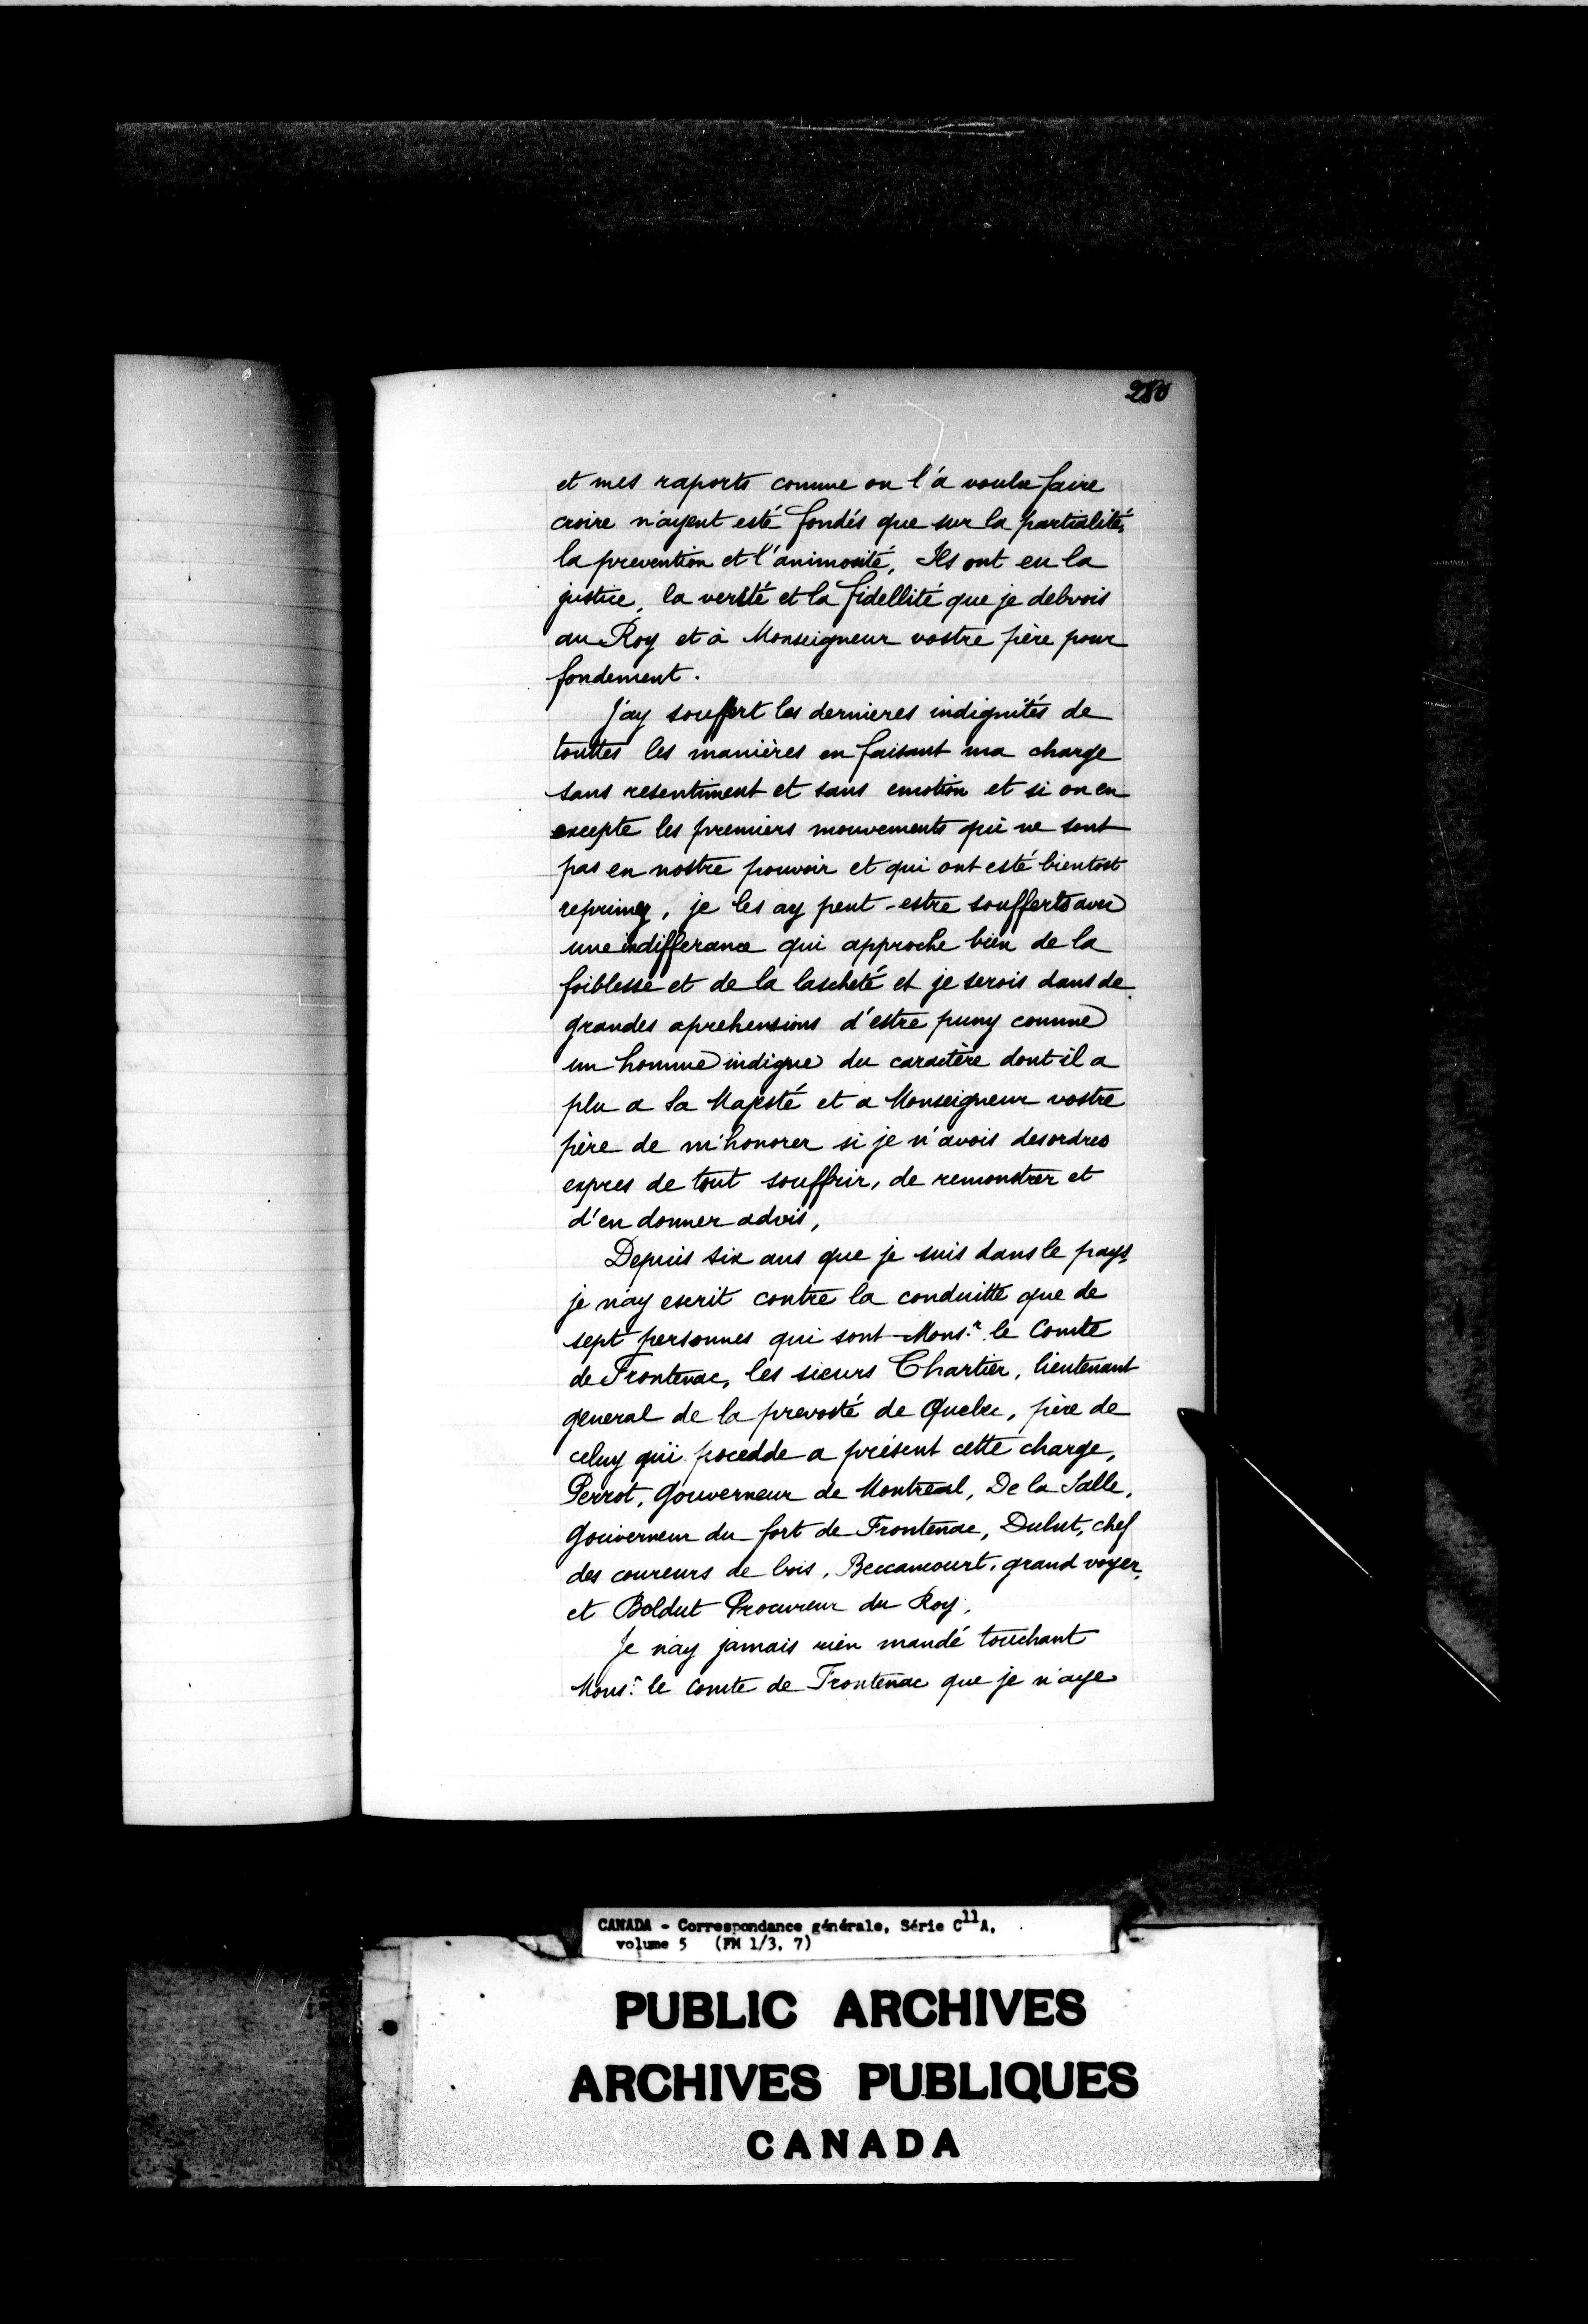 280
et mes raports comme on l'a voulu faire
croire n'ayent esté fondés que sur la partialité,
la prevention et l'animosité, Ils ont eu la
justice, la verité et la fidellité que je debvois
au Roy et à Monseigneur vostre père pour
fondement.
J'ay souffert les dernieres indignités de
touttes les manières en faisant ma charge
sans resentiment et sans emotion et si on en
excepte les premiers mouvements qui ne sont
pas en nostre pouvoir et qui ont esté bientost
reprimez, je les ay peut-estre soufferts avec
une indifferance qui approche bien de la
foiblesse et de la lascheté et je serois dans de
grandes aprehensions d'estre puny comme
un homme indigne du caractère dont il a
plu a Sa Majesté et a Monseigneur vostre
père de m'honorer si je n'avois des ordres
expres de tout souffrir, de remonstrer et
d'en donner advis,
Depuis six ans que je suis dans le pays,
je n'ay escrit contre la conduitte que de
sept personnes qui sont Mons.r le Comte
de Frontenac, les sieurs Chartier, lieutenant
general de la prevosté de Quebec, père de
celuy qui possedde a présent cette charge,
Perrot, Gouverneur de Montreal, De la Salle,
Gouverneur du fort de Frontenac, Dulut, chef
des coureurs de bois, Beccancourt, grand voyer,
et Boldut Procureur du Roy,
Je n'ay jamais rien mandé touchant
Mons.r le Comte de Frontenac que je n'aye
CANADA - Correspondance générale, Série C11A,
volume 5 (FM 1/3, 7)
PUBLIC ARCHIVES
ARCHIVES PUBLIQUES
CANADA